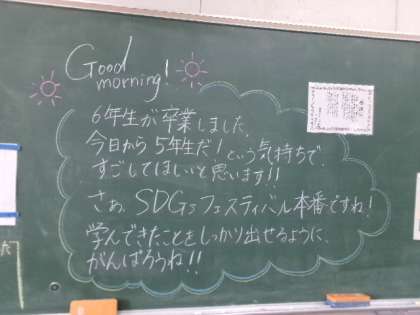 Good
morning!
6年生が卒業しました。
今日から5年生だ!という気持ちで、
すごしてほしいと思います!!
さぁ、SDGsフェスティバル本番ですね!
学んできたことをしっかり出せるように、
がんばろうね!!